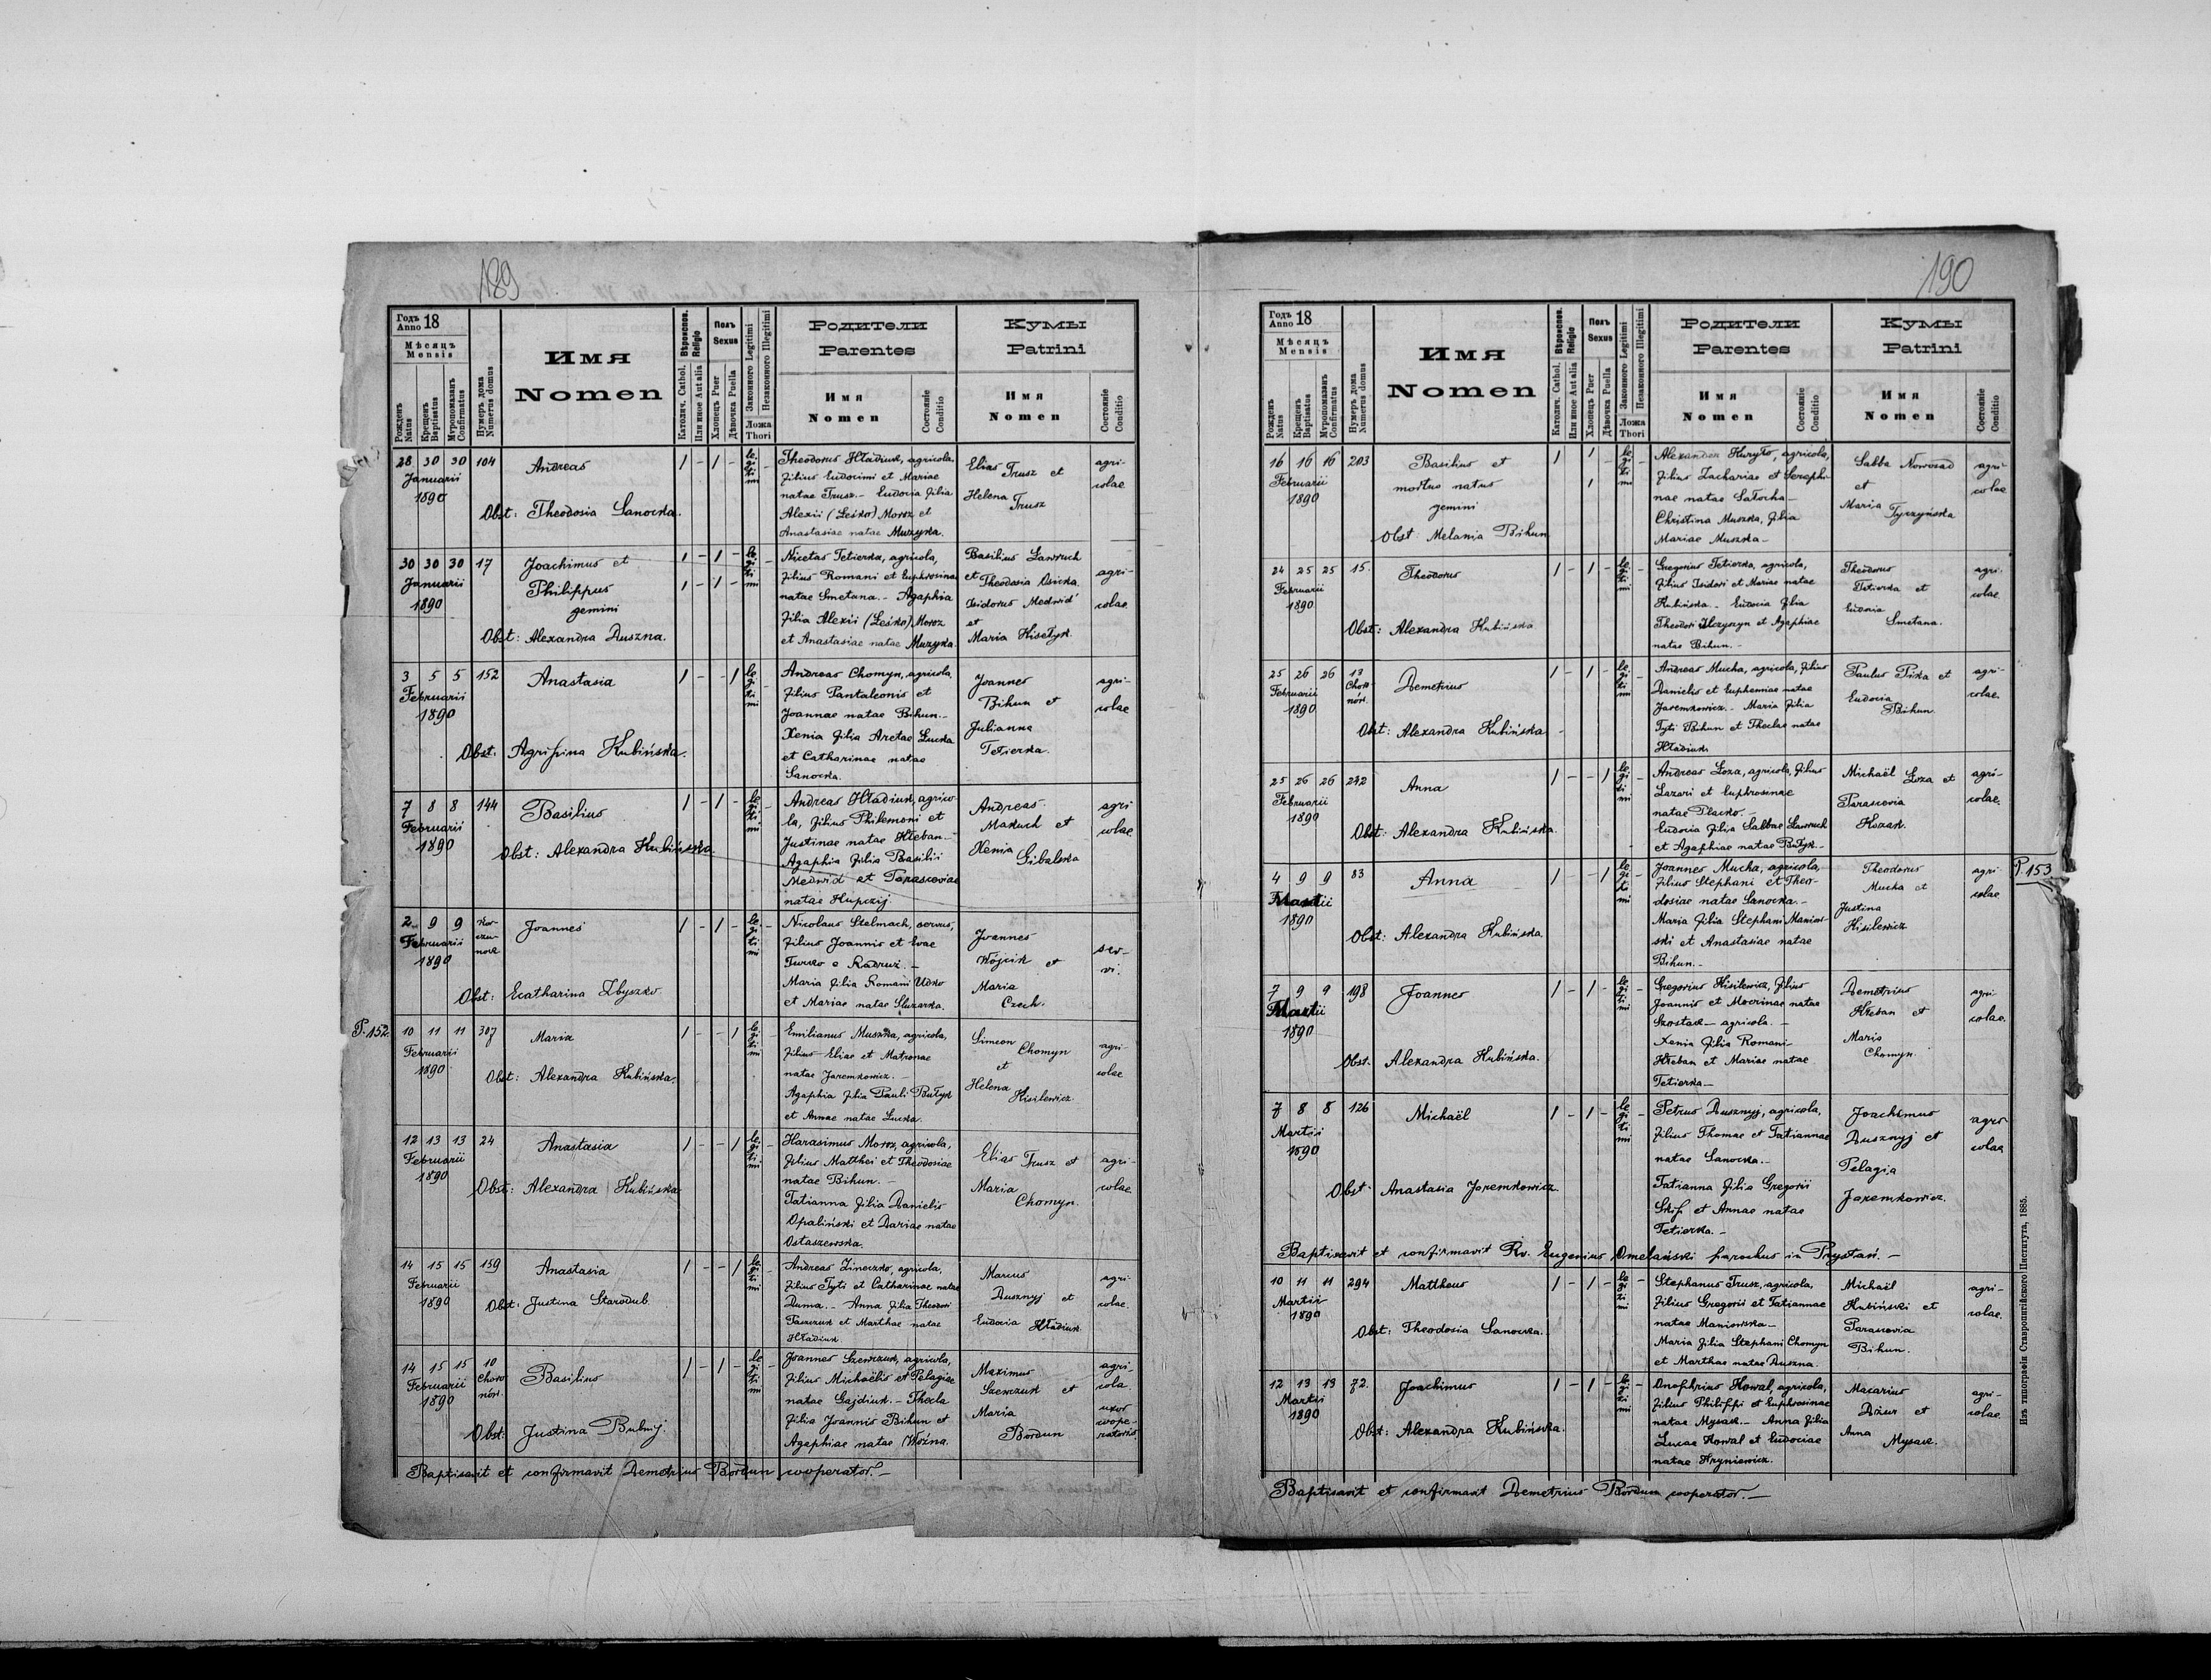 189
Годъ
Anno 18
Мѣсяцъ
Mensis
Рожденъ
Natus
Крещенъ
Baptisatus
Мѵропомазанъ
Confirmatus
Нумеръ дома
Numerus domus
Имя
Nomen
Вѣроиспов.
Religio
Католич. Cathol.
Или иное Aut alia
Полъ
Sexus
Хлопецъ Puer
Дѣвочка Puella
Законного Legitimi
Незаконного Illegitimi
Ложа
Thori
Родители
Parentes
Имя
Nomen
Состояніе
Conditio
Кумы
Patrini
Имя
Nomen
Состояніе
Conditio
28 30 30 104
Januarii
1890
Andreas
Obst: Theodosia Sanocka.
1 - 1 -
legitimi -
Theodorus Hładiuk, agricola,
filius Eudocimi et Mariae
natae Trusz. - Eudocia filia
Alexii (Leśko) Moroz et
Anastasiae natae Muzyka.
Elias
Trusz et
Helena
Trusz
agri-
colae
30 30 30 17
Januarii
1890
Joachimus et
Philippus
gemini
Obst: Alexandra Duszna.
1 - 1 -
1 - 1 -
legitimi -
Nicetas Tetierka, agricola,
filius Romani et Euphrosinae
natae Smetana. - Agaphia
filia Alexii (Leśko) Moroz
et Anastasiae natae Muzyka.
Basilius Ławruch
et
Theodosia Osicka.
Isidorus Medwid'
et
Maria Kisełyk.
agri-
colae
3 5 5 152
Februarii
1890
Anastasia
Obst: Agrifina Kubińska.
1 - - 1
legitimi -
Andreas Chomyn, agricola,
filius Pantaleonis et
Joannae natae Bihun. -
Xenia filia Aretae Łucka
et Catharinae natae
Sanocka.
Joannes
Bihun et
Julianna
Tetierka.
agri-
colae
7 8 8 144
Februarii
1890
Basilius
Obst: Alexandra Kubińska.
1 - 1 -
legitimi -
Andreas Hładiuk, agrico-
la, filius Philemoni et
Justinae natae Hłeban. -
Agaphia filia Basilii
Medwid et Parasceviae
natae Hupczij.
Andreas
Makuch et
Xenia
Gibalska
agri
colae
2 9 9
Februarii
1890
Joannes
Obst: Ecatharina Zbyszko
1 - 1 -
legitimi -
Nicolaus Stelmach, servus,
filius Joannis et Evae
Turko e Radruż. -
Maria filia Romani Udko
et Mariae natae Sluzarka.
Joannes
Wójcik et
Maria
Czech.
ser-
vi.
P. 152.
10 11 11 307
Februarii
1890
Maria
Obst: Alexandra Kubińska.
1 - - 1
legitimi -
Emilianus Muszka, agricola,
filius Eliae et Matronae
natae Jaremkowicz. -
Agaphia filia Pauli Bułyk
et Annae natae Łucka.
Simeon
Chomyn
et
Helena
Kisilewicz
agri-
colae
12 13 13 24
Februarii
1890
Anastasia
Obst: Alexandra Kubińska
1 - - 1
legitimi -
Harasimus Moroz, agricola,
filius Matthei et Theodosiae
natae Bihun. -
Tatianna filia Danielis
Opaliński et Dariae natae
Ostaszewska.
Elias Trusz et
Maria
Chomyn.
agri-
colae
14 15 15 159
Februarii
1890
Anastasia
Obst: Justina Starodub
1 - - 1
legitimi -
Andreas Zineczko, agricola,
filius Tyti et Catharinae natae
Duma. - Anna filia Theodori
et Marthae natae
Hładiuk
Marcus
Dusznyj et
Eudocia Hładiuk
agri-
colae
14 15 15 10
Februarii
1890
Choro
nów.
Basilius
Obst: Justina Bubnij.
1 - 1 -
legitimi -
Joannes Szewczuk, agricola,
filius Michaëlis et Pelagiae
natae Gajdiuk. - Thecla
filia Joannis Bihun et
Agaphiae natae Woźna.
Maximus
Szewczuk et
Maria
Bordun
agri-
cola.
uxor
coope-
ratoris.
Baptisavit et confirmavit Demetrius Bordun cooperator. -
190
Годъ
Anno 18
Мѣсяцъ
Mensis
Рожденъ
Natus
Крещенъ
Baptisatus
Мѵропомазанъ
Confirmatus
Нумеръ дома
Numerus domus
Имя
Nomen
Вѣроиспов.
Religio
Католич. Cathol.
Или иное Aut alia
Полъ
Sexus
Хлопецъ Puer
Дѣвочка Puella
Законного Legitimi
Незаконного Illegitimi
Ложа
Thori
Родители
Parentes
Имя
Nomen
Состояніе
Conditio
Кумы
Patrini
Имя
Nomen
Состояніе
Conditio
16 16 16 203
Februarii
1890
Basilius et
mortuo natus
gemini
Obst: Melania Bihun
1 1 -
1
legitimi
Alexander Kuryło, agricola,
filius Zachariae et Seraphi-
nae natae Sałocha -
Christina Muszka, filia
Mariae Muszka -
Sabba Nowosad
et
Maria
Tyrzyńska
agri
colae
24 25 25 15.
Februarii
1890
Theodorus
Obst: Alexandra Kubińska
1 - 1 -
legitimi -
Gregorius Tetierka, agricola,
filius Isidori et Mariae natae
Kubińska. - Eudocia filia
Theodori Ilczyszyn et Agaphiae
natae Bihun. -
Theodorus
Tetierka et
Eudocia
Smetana.
agri-
colae.
25 26 26 13
Februarii
1890
Choro
nów.
Demetrius
Obst: Alexandra Kubińska
1 - 1 -
legitimi -
Andreas Mucha, agricola, filius
Danielis et Euphemiae natae
Jaremkowicz. - Maria filia
Tyti Bihun et Theclae natae
Hładiuk
Paulus Piska et
Eudocia
Bihun.
agri-
colae.
25 26 26 242
Februarii
1890
Anna
Obst: Alexandra Kubińska.
1 - - 1
legitimi -
Andreas Łoza, agricola, filius
Lazari et Euphrosinae
natae Placko. -
Eudocia filia Sabbae Ławruch
et Agaphiae natae Bułyk. -
Michaël Łoza et
Parascevia
Kozak.
agri-
colae.
P. 153
4 9 9 83
Martii
1890
Anna
Obst: Alexandra Kubińska
1 - - 1
legitimi
Joannes Mucha, agricola,
filius Stephani et Theo-
dosiae natae Sanocka. -
Maria filia Stephani Maniow-
ski et Anastasiae natae
Bihun. -
Theodorus
Mucha et
Justina
Kisilewicz
agri
colae
7 9 9 198
Martii
1890
Joannes
Obst. Alexandra Kubińska.
1 - 1 -
legitimi -
Gregorius Kisilewicz, filius
Joannis et Mocrinae natae
Szostak - agricola. -
Xenia filia Romani
Hłeban et Mariae natae
Tetierka -
Demetrius
Hłeban et
Maria
Chomyn.
agri-
colae.
7 8 8 126
Martii
1890
Michaël
Obst. Anastasia Jaremkowicz.
1 - 1 -
legitimi
Petrus Dusznyj, agricola,
filius Thomae et Tatiannae
natae Sanocka. -
Tatianna filia Gregorii
Skif et Annae natae
Tetierka. -
Joachimus
Dusznyj et
Pelagia
Jaremkowicz.
agri
colae
Baptisavit et confirmavit Rv. Eugenius Omelański parochus in Prystań. -
10 11 11 294
Martii
1890
Mattheus
Obst: Theodosia Sanocka.
1 - 1 -
legitimi -
Stephanus Trusz, agricola,
filius Gregorii et Tatiannae
natae Maniowska -
Maria filia Stephani Chomyn
et Marthae natae Duszna.
Michaël
Kubiński et
Parascevia
Bihun.
agri-
colae.
12 13 13 72.
Martii
1890
Joachimus
Obst: Alexandra Kubińska.
1 - 1 -
legitimi -
Onofhrius Kowal, agricola,
filius Philippi et Euphrosinae
natae Mysak. - Anna filia
Lucae Kowal et Eudociae
natae Hryniewicz.
Macarius
Dziur et
Anna
Mysak.
agri-
colae
Baptisavit et confirmavit Demetrius Bordun cooperator. -
Изъ типографіи Ставропигійского Института, 1885.